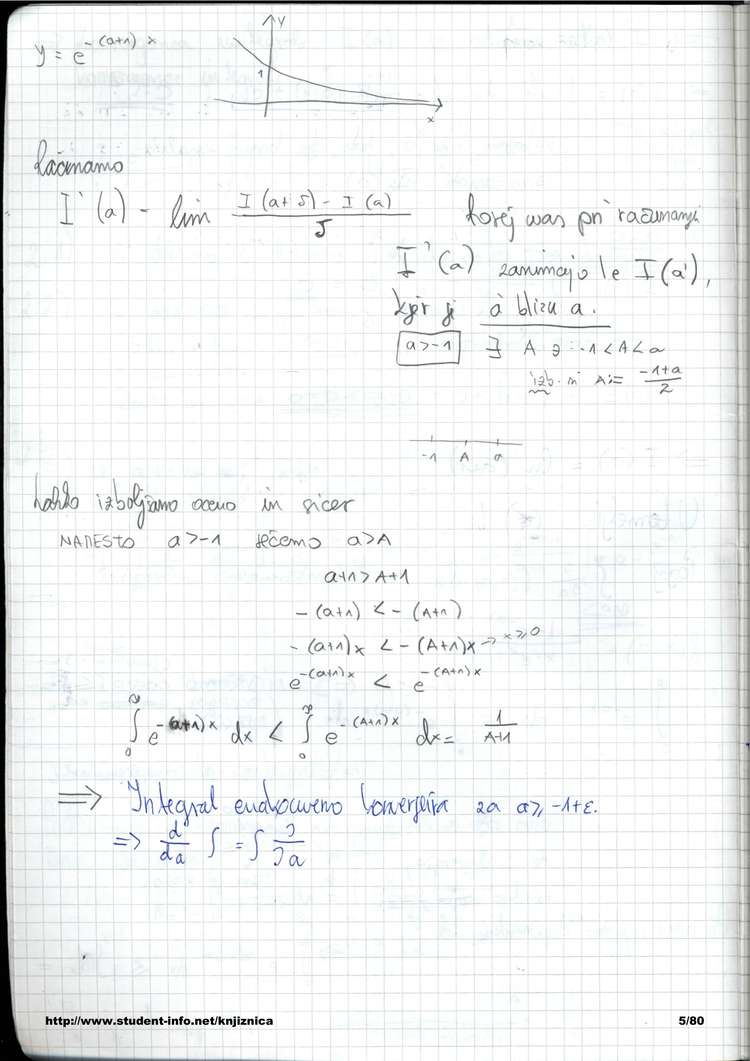 y = e^{-(a+1)x}
y
1
x
Računamo
I'(a) = lim (I(a+δ) - I(a))/δ torej nas pri računanju
I'(a) zanimajo le I(a'),
kjer je a' blizu a.
a>-1 ∃ A ∋: -1<A<a
izb. A:= (-1+a)/2
-1 A a
Lahko izboljšamo oceno in sicer
NAMESTO a>-1 rečemo a>A
a+1>A+1
-(a+1) < -(A+1)
-(a+1)x < -(A+1)x → x≥0
e^{-(a+1)x} < e^{-(A+1)x}
∫_0^∞ e^{-(a+1)x} dx < ∫_0^∞ e^{-(A+1)x} dx = 1/(A+1)
⟹ Integral enakomerno konvergira za a≥-1+ε.
⟹ d/da ∫ = ∫ ∂/∂a
http://www.student-info.net/knjiznica 5/80